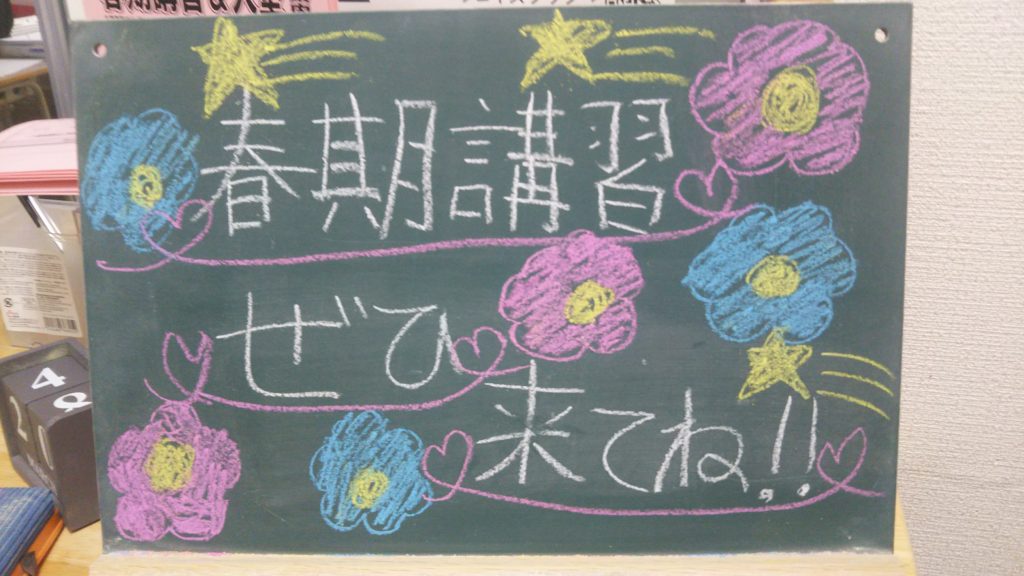 春期講習
ぜひ
来てね!!